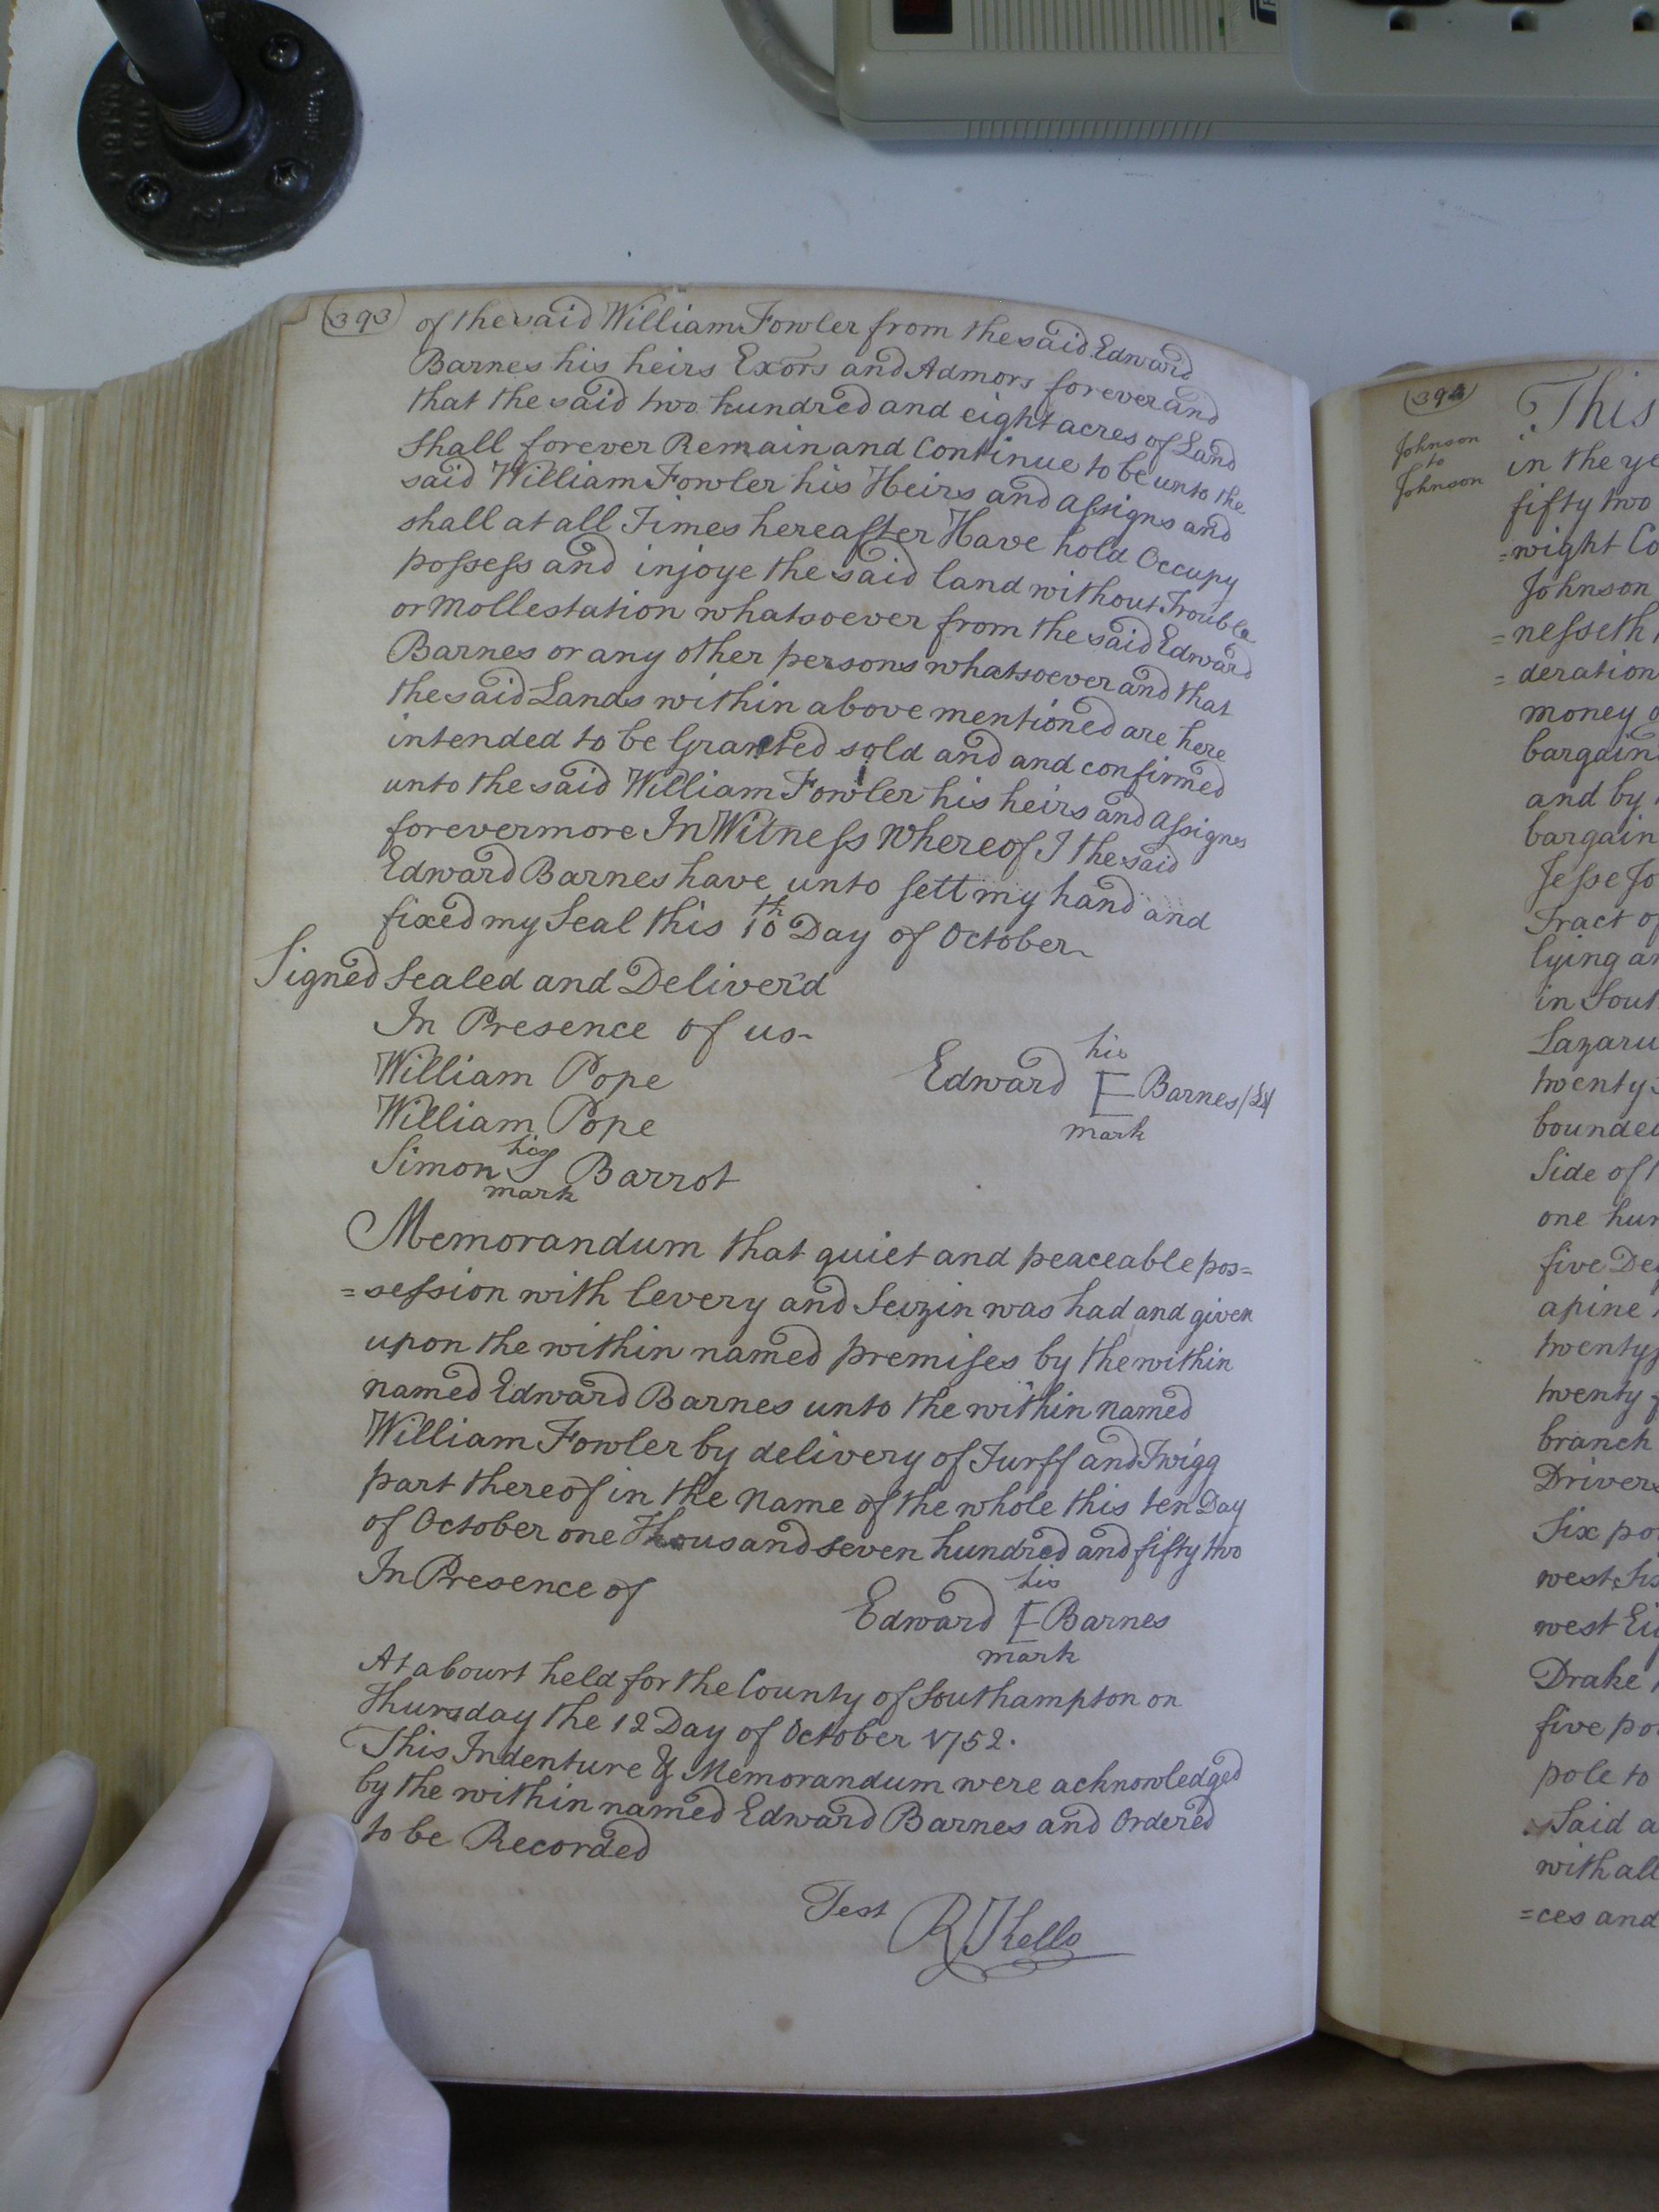 (393) of the said William Fowler from the said Edward
Barnes his heirs Exors and Admors forever and
that the said two hundred and eight acres of Land
shall forever Remain and Continue to be unto the
said William Fowler his Heirs and assigns and
shall at all Times hereafter Have hold Occupy
possess and injoye the said land without Trouble
or Mollestation whatsoever from the said Edward
Barnes or any other persons whatsoever and that
the said Lands within above mentioned are here
intended to be Granted sold and and confirmed
unto the said William Fowler his heirs and assignes
forevermore In Witness whereof I the said
Edward Barnes have unto sett my hand and
fixed my Seal this 10th Day of October
Signed Sealed and Deliver'd
In Presence of us
William Pope
William Pope
Simon his S mark Barrot
his
Edward E Barnes (LS)
mark
Memorandum that quiet and peaceable pos=
=session with levery and Seizin was had and given
upon the within named premises by the within
named Edward Barnes unto the within named
William Fowler by delivery of Turff and Twigg
part thereof in the name of the whole this ten Day
of October one Thousand seven hundred and fifty two
In Presence of
his
Edward E Barnes
mark
At a Court held for the County of Southampton on
Thursday the 12 Day of October 1752.
This Indenture & Memorandum were acknowledged
by the within named Edward Barnes and Ordered
to be Recorded
Test RJKello
(394)
Johnson
to
Johnson
This
in the ye
fifty two
=wight Co
Johnson
=nesseth
=deration
money o
bargain
and by
bargain
Jesse Jo
Tract of
lying an
in Sout
Lazaru
twenty
bounded
Side of
one hun
five De
a pine
twenty
twenty
branch
Drivers
Six po
west Six
west Ei
Drake
five po
pole to
Said a
with all
=ces and